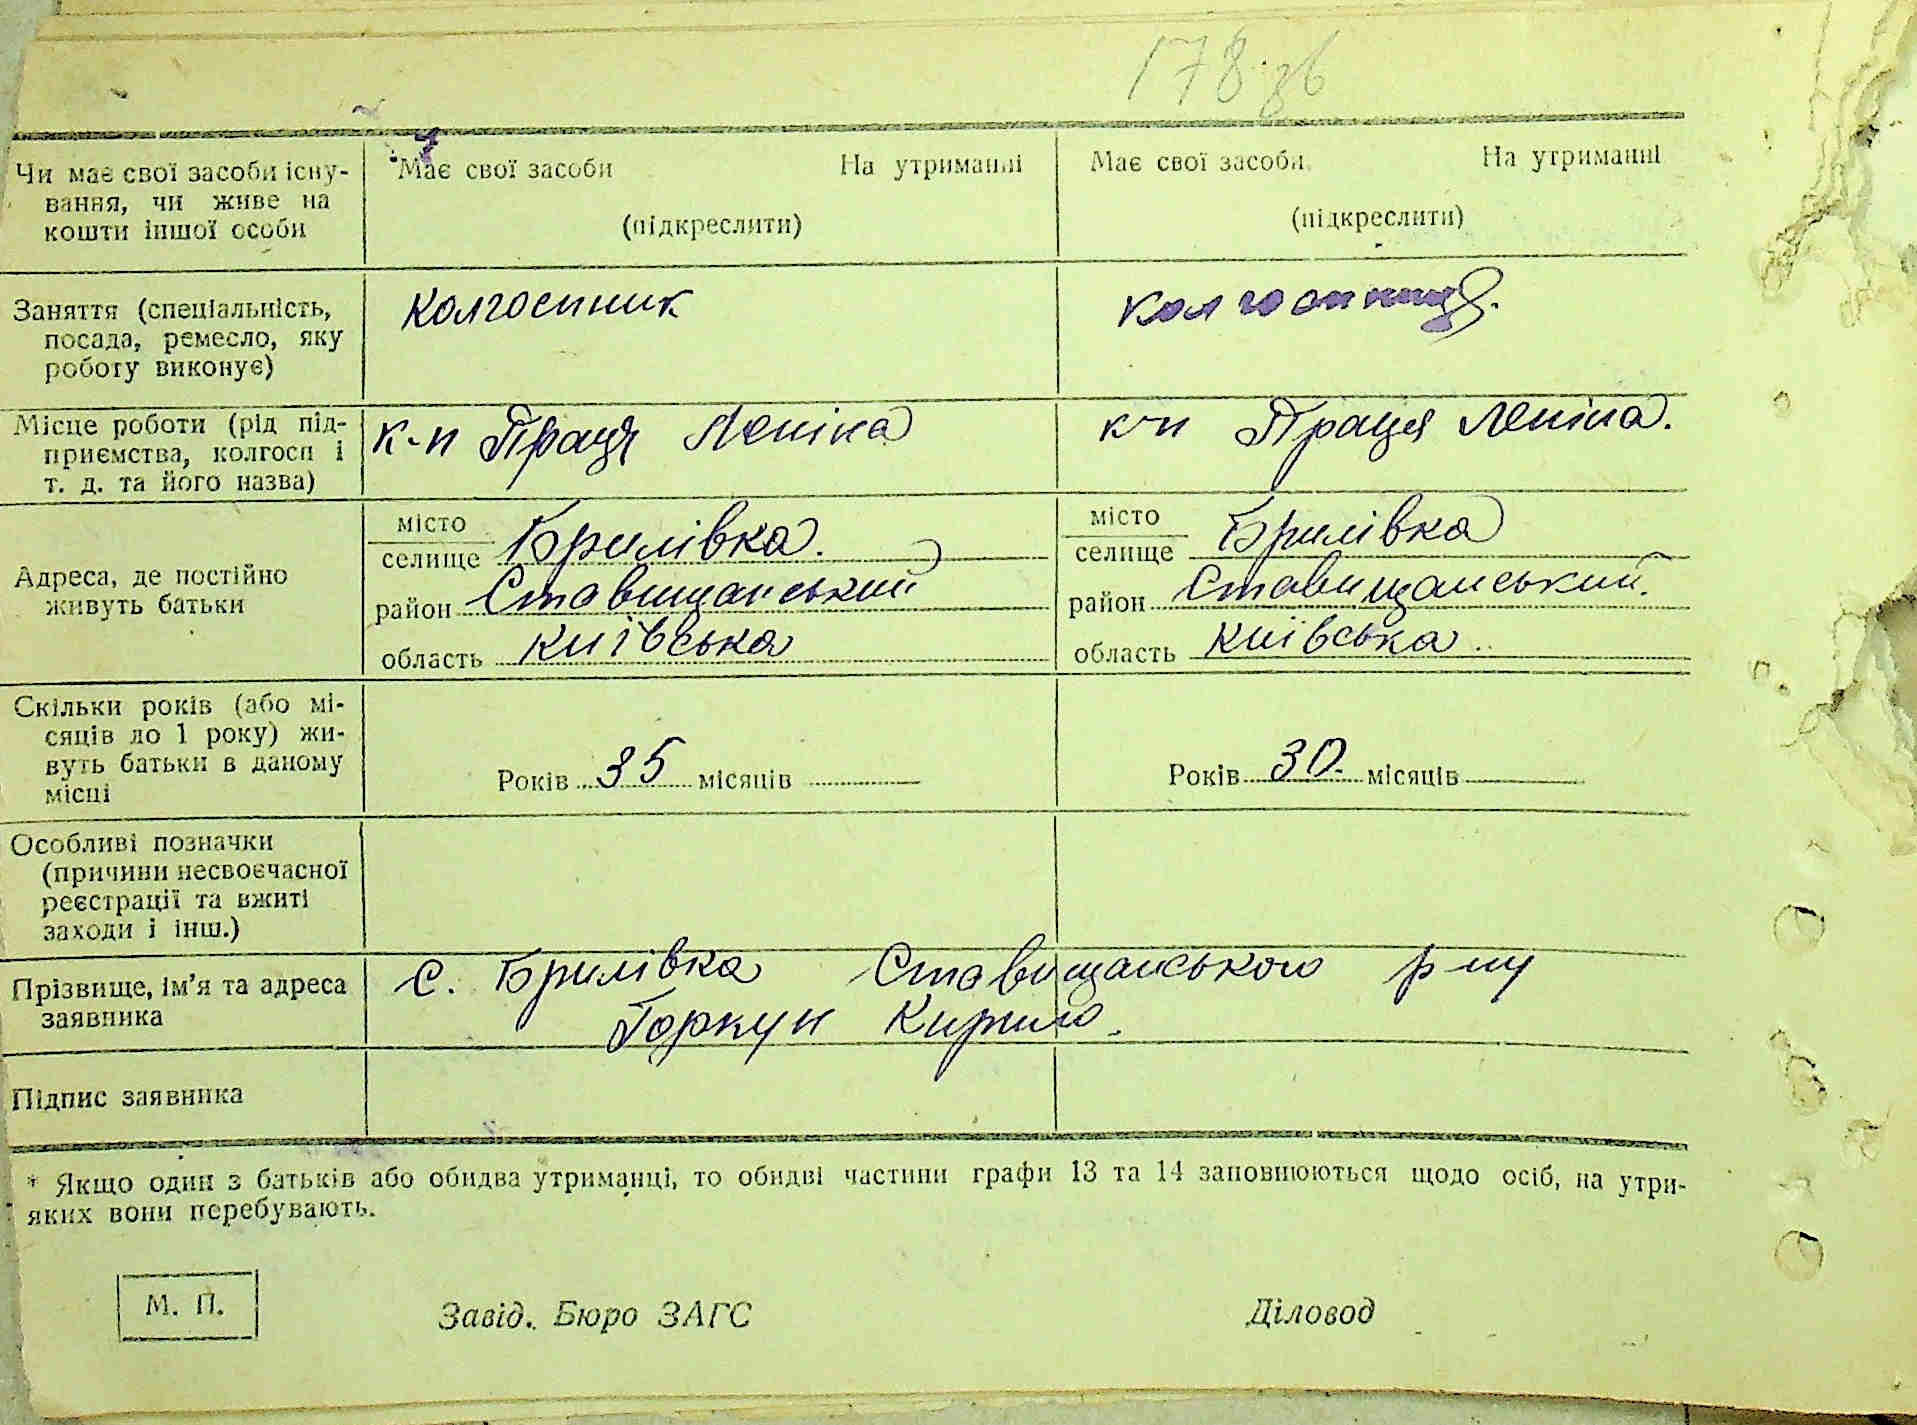 178 зв
Чи має свої засоби існу- Має свої засоби На утриманні Має свої засоби На утриманні
вання, чи живе на
кошти іншої особи (підкреслити) (підкреслити)
Заняття (спеціальність, колгоспник колгоспниця.
посада, ремесло, яку
роботу виконує)
Місце роботи (рід під- к-п Праця Леніна к-п Праця Леніна.
приємства, колгосп і
т. д. та його назва)
місто місто
селище Брилівка. селище Брилівка
Адреса, де постійно
живуть батьки
район Ставищанський район Ставищанський.
область київська область київська.
Скільки років (або мі-
сяців до 1 року) жи-
вуть батьки в даному
місці
Років 35 місяців Років 30. місяців
Особливі позначки
(причини несвоєчасної
реєстрації та вжиті
заходи і інш.)
Прізвище, ім'я та адреса с. Брилівка Ставищанського р-ну
заявника Горкун Кирило.
Підпис заявника
* Якщо один з батьків або обидва утриманці, то обидві частини графи 13 та 14 заповнюються щодо осіб, на утри-
яких вони перебувають.
М. П. Завід. Бюро ЗАГС Діловод